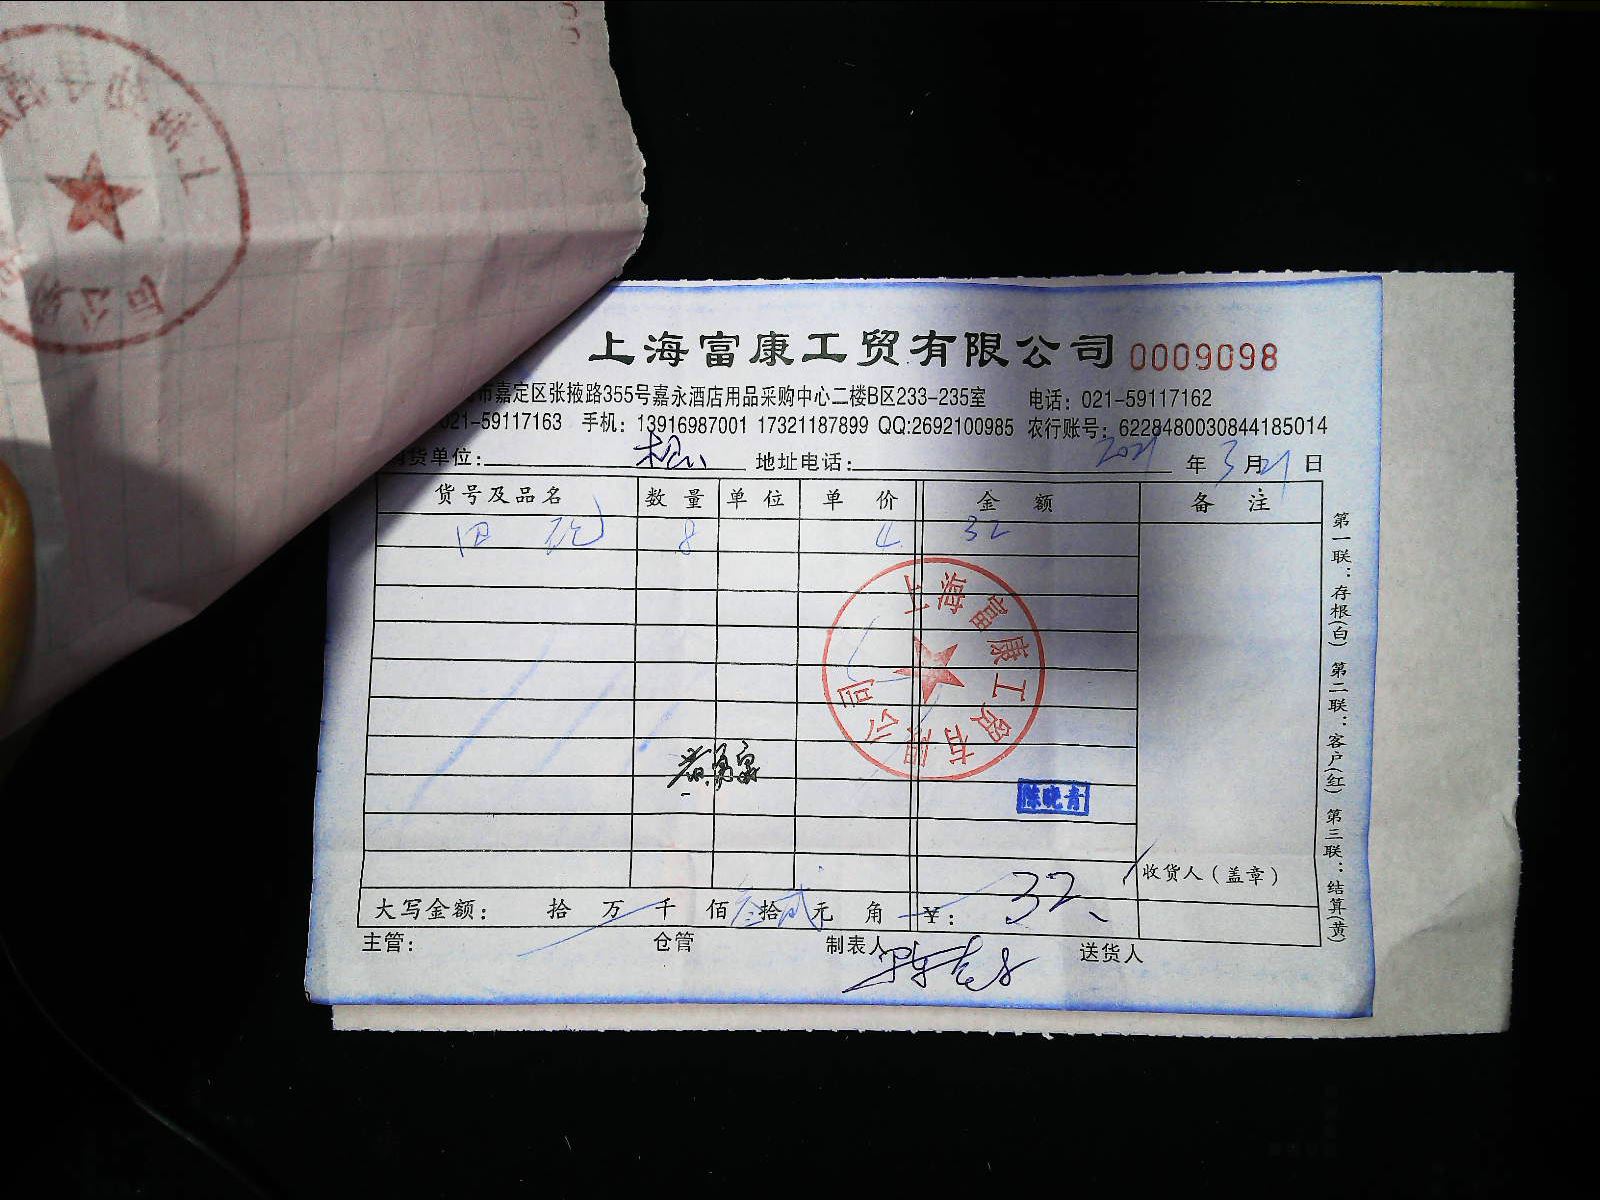 上海富康工贸有限公司 0009098
市嘉定区张掖路355号嘉永酒店用品采购中心二楼B区233-235室 电话：021-59117162
021-59117163 手机：13916987001 17321187899 QQ:2692100985 农行账号：6228480030844185014
购货单位： 地址电话： 2021 年 3 月 21 日
货号及品名 数量 单位 单价 金额 备注
8 4 32
上海富康工贸有限公司
陈晓青
收货人（盖章）
大写金额： 拾 万 千 佰 叁 拾 贰 元 角 ￥： 32
主管： 仓管 制表人 送货人
第一联：存根(白) 第二联：客户(红) 第三联：结算(黄)